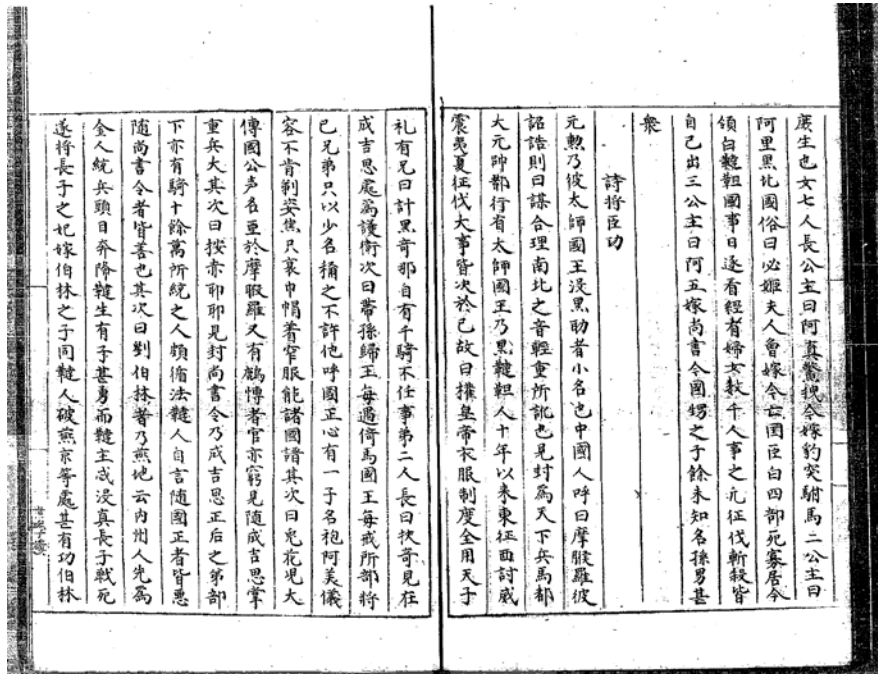 庶生也女七人長公主曰阿真鱉拽今嫁豹突駙馬二公主曰
阿里黑北國俗曰必姬夫人曾嫁令亡国臣白四部死寡居今
領白韃靼國事日逐看經有婦女数千人事之凢征伐斬殺皆
自己出三公主曰阿五嫁尚書令國甥之子餘未知名孫男甚
衆
諸將臣功
元勲乃彼太師國王没黒肋者小名也中國人呼曰摩睺羅彼
詔誥則曰謀合理南北之音輕重所訛也見封爲天下兵馬都
大元帥都行省太師國王乃黒韃靼人十年以来東征西討威
震夷夏征伐大事皆决於己故曰攉皇帝衣服制度全用天子
礼有兄曰計里奇那自有千騎不任事弟二人長曰抶奇見在
成吉思處爲護衛次曰帶孫歸王每遇倚馬國王每戒所部將
已兄弟只以少名稱之不許他呼國王心有一子名袍阿美儀
容不肯剃婆焦只裹巾帽着窄服能諸國語其次曰兎花児大
傳國公声名亜於摩睺羅又有鷓愽者官亦窮見隨成吉思掌
重兵大其次曰按赤耶耶見封尚書令乃成吉思正后之弟部
下亦有騎十餘萬所統之人頗循法韃人自言随國王者皆悪
随尚書令者皆善也其次曰劉伯林者乃燕地云内州人先爲
金人統兵頭目奔降韃生有子甚勇而韃主忒没真長子戰死
遂将長子之妃嫁伯林之子同韃人破燕京等處甚有功伯林